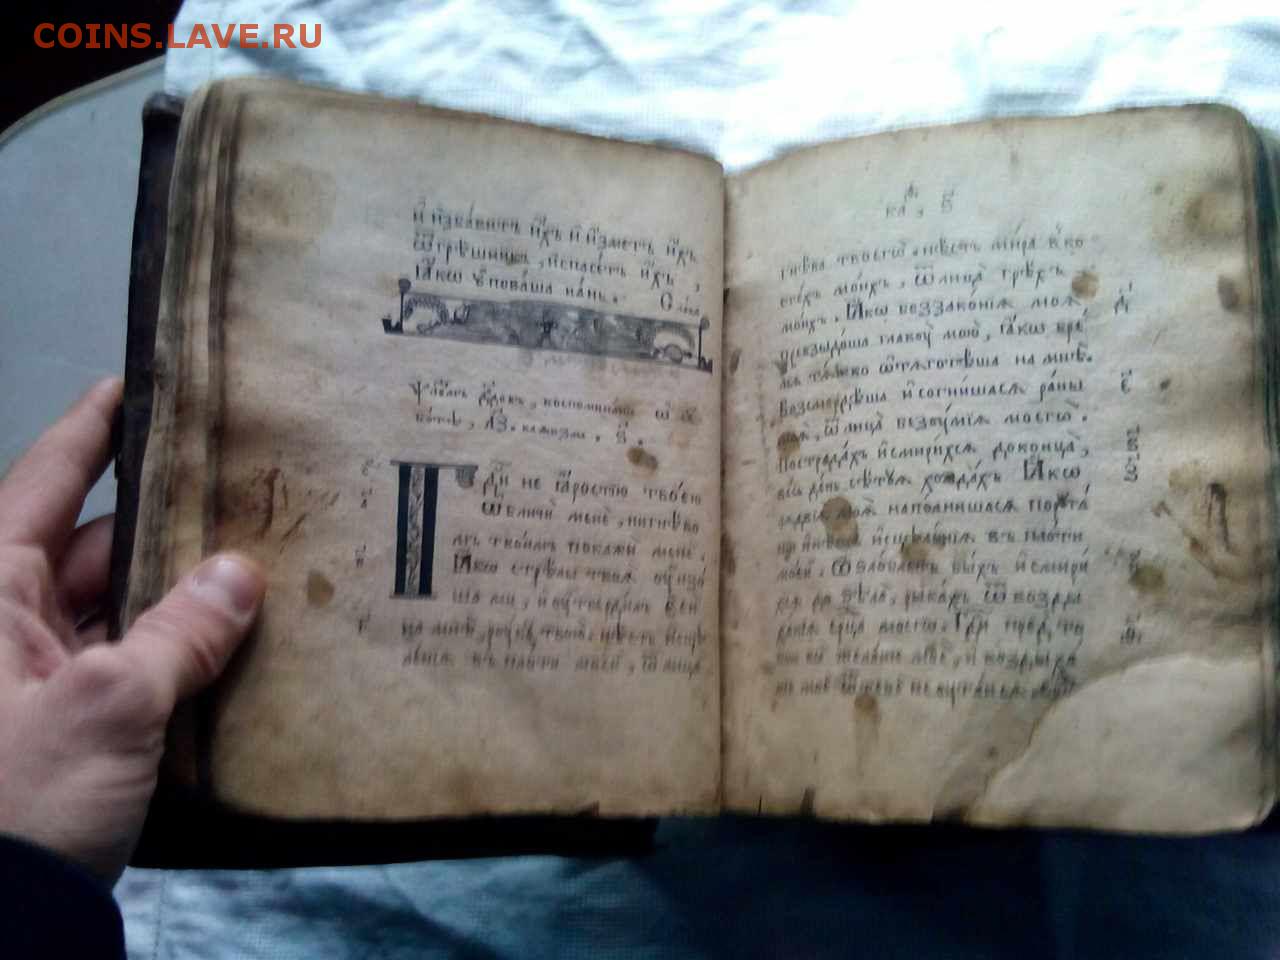 COINS.LAVE.RU
И҆ и҆збавитъ и҆́хъ и҆ и҆́зметъ и҆́хъ
ѿгрѣшникъ, и҆спасетъ и҆́хъ,
ꙗ҆́кѡ ѹ҆пова́ша на́нь. Сла́ва
ѱало́мъ дв҃довъ, воспомина́нїе ѡ҆
ло́тѣ, л҃з. каѳизма. ѕ҃.
Гд҃и не ꙗ҆́ростїю твоею
ѡ҆бличи менѐ, нигнѣво
мъ твои́мъ покажи менѐ.
Ꙗ҆́кѡ стрѣлы твоѧ̀ ѹ҆нзо́
ша ми, и҆ ѹ҆тверди́лъ є҆сѝ
на мнѣ̀, рꙋ́кꙋ твою̀. нѣ́сть и҆сцѣ
ле́нїѧ въ пло́ти мое́й, ѿ лица̀
ка, ѕ҃
гнѣ́ва твоегѡ̀. нѣ́сть ми́ра в ко
сте́хъ мои́хъ, ѿ лица̀ грѣ́хъ
мои́хъ. Ꙗ҆́кѡ беззако́нїѧ моѧ̀
превзыдо́ша главꙋ̀ мою̀, ꙗ҆́кѡ бре́
мѧ тѧ́жко ѡ҆тѧготѣ́ша на мнѣ̀.
Возсмердѣ́ша и҆ согни́шасѧ ра́ны
моѧ̀, ѿ лица̀ безꙋ́мїѧ моегѡ̀.
Пострада́хъ и҆ смири́хсѧ доконца̀,
ве́сь де́нь сѣ́тꙋѧ хожда́хъ. Ꙗ҆́кѡ
лѧ́двїѧ моѧ̀ напо́лнишасѧ порꙋга́
нїй, и҆ нѣ́сть и҆сцѣле́нїѧ въ пло́ти
мое́й. Ѡ҆ѕло́бленъ бы́хъ и҆ смири́
хсѧ до ѕѣла̀, рыка́хъ ѿ возды
ха́нїѧ се́рдца моегѡ̀. Гд҃и пред̾ то
бо́ю всѐ жела́нїе моѐ, и҆ воздыха́
нїе моѐ ѿ тебє̀ не ѹ҆таи́сѧ.